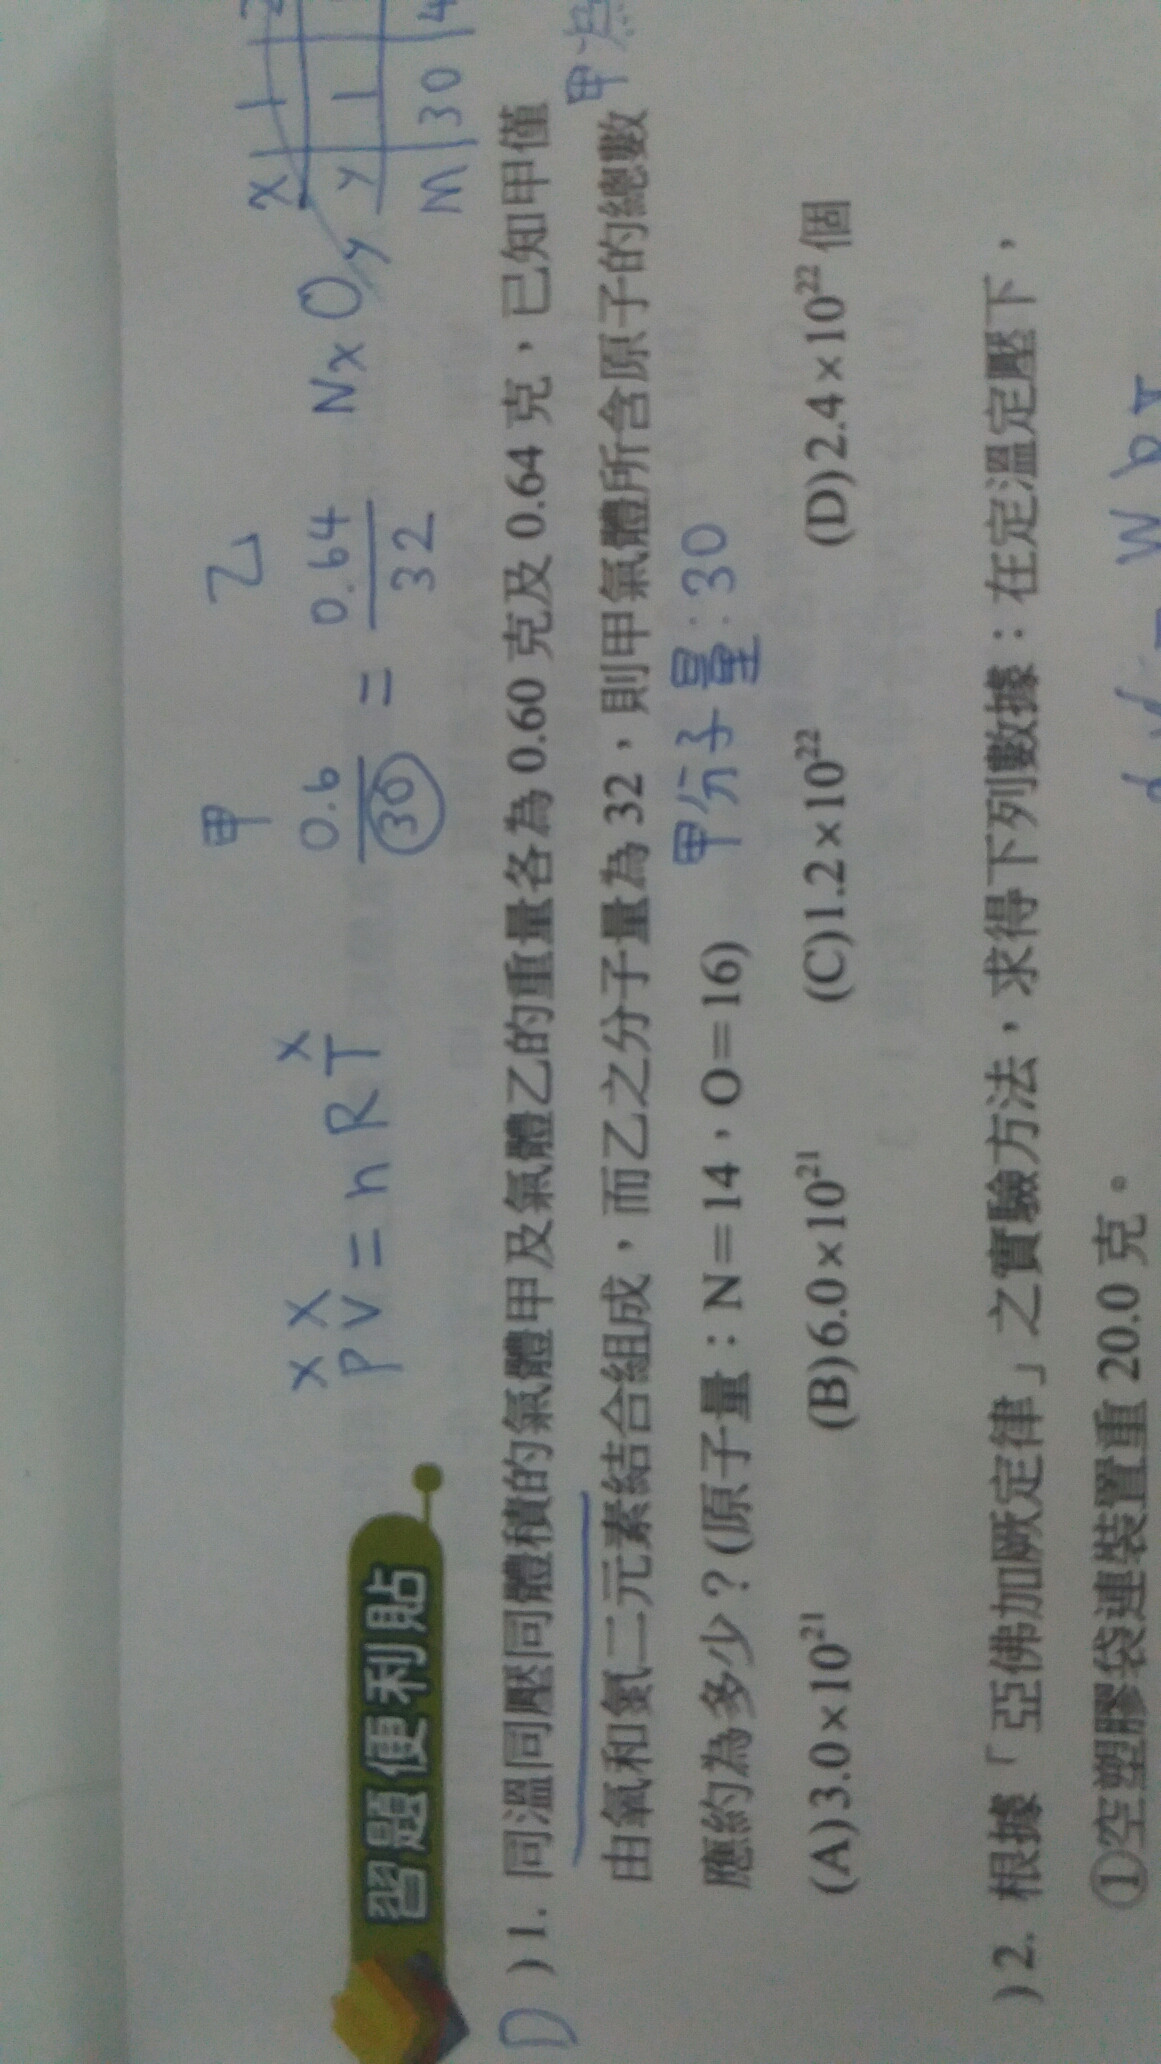 甲 乙
P V = n R T
x x x
0.6 / 30 = 0.64 / 32
NxOy
x 1
y 1
M 30 4
習題便利貼
D )1. 同溫同壓同體積的氣體甲及氣體乙的重量各為 0.60 克及 0.64 克,已知甲僅
由氧和氮二元素結合組成,而乙之分子量為 32,則甲氣體所含原子的總數
應約為多少?(原子量:N=14,O=16)
甲分子量:30
(A)3.0×10²¹ (B)6.0×10²¹ (C)1.2×10²² (D)2.4×10²² 個
)2. 根據「亞佛加厥定律」之實驗方法,求得下列數據:在定溫定壓下,
①空塑膠袋連裝置重 20.0 克。